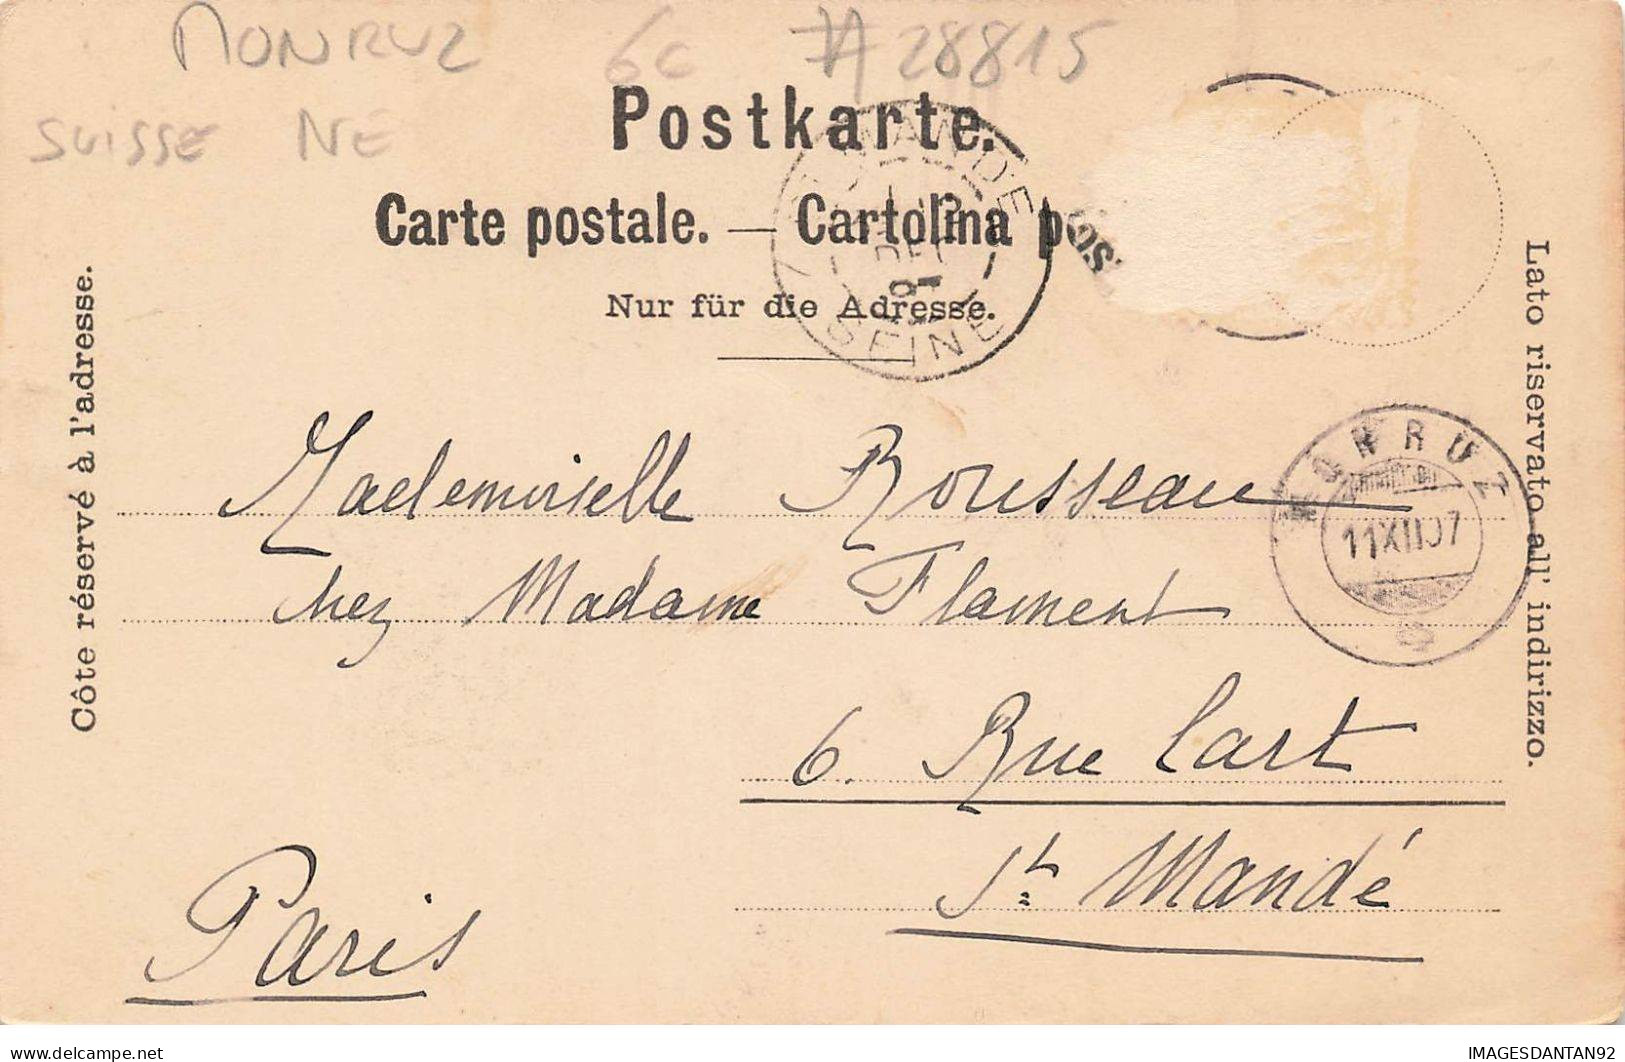 MONRUZ 6c #28815
SUISSE NE
Postkarte.
Carte postale. — Cartolina pos
Nur für die Adresse.
Côte réservé à l'adresse.
Lato riservato all' indirizzo.
ST MANDE
12
DEC
SEINE
MONRUZ
11 XII 07
Mademoiselle Rousseau
chez Madame Flament
6. Rue Cart
St. Mandé
Paris
IMAGESDANTAN92
delcampe.net